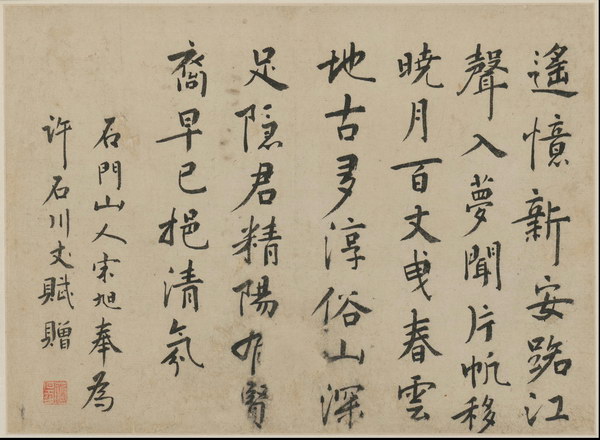 遙憶新安路江
聲入夢聞片帆移
曉月百丈曳春雲
地古多淳俗山深
足隱君精陽有賢
裔早已挹清芬
石門山人宋旭奉為
許石川丈賦贈